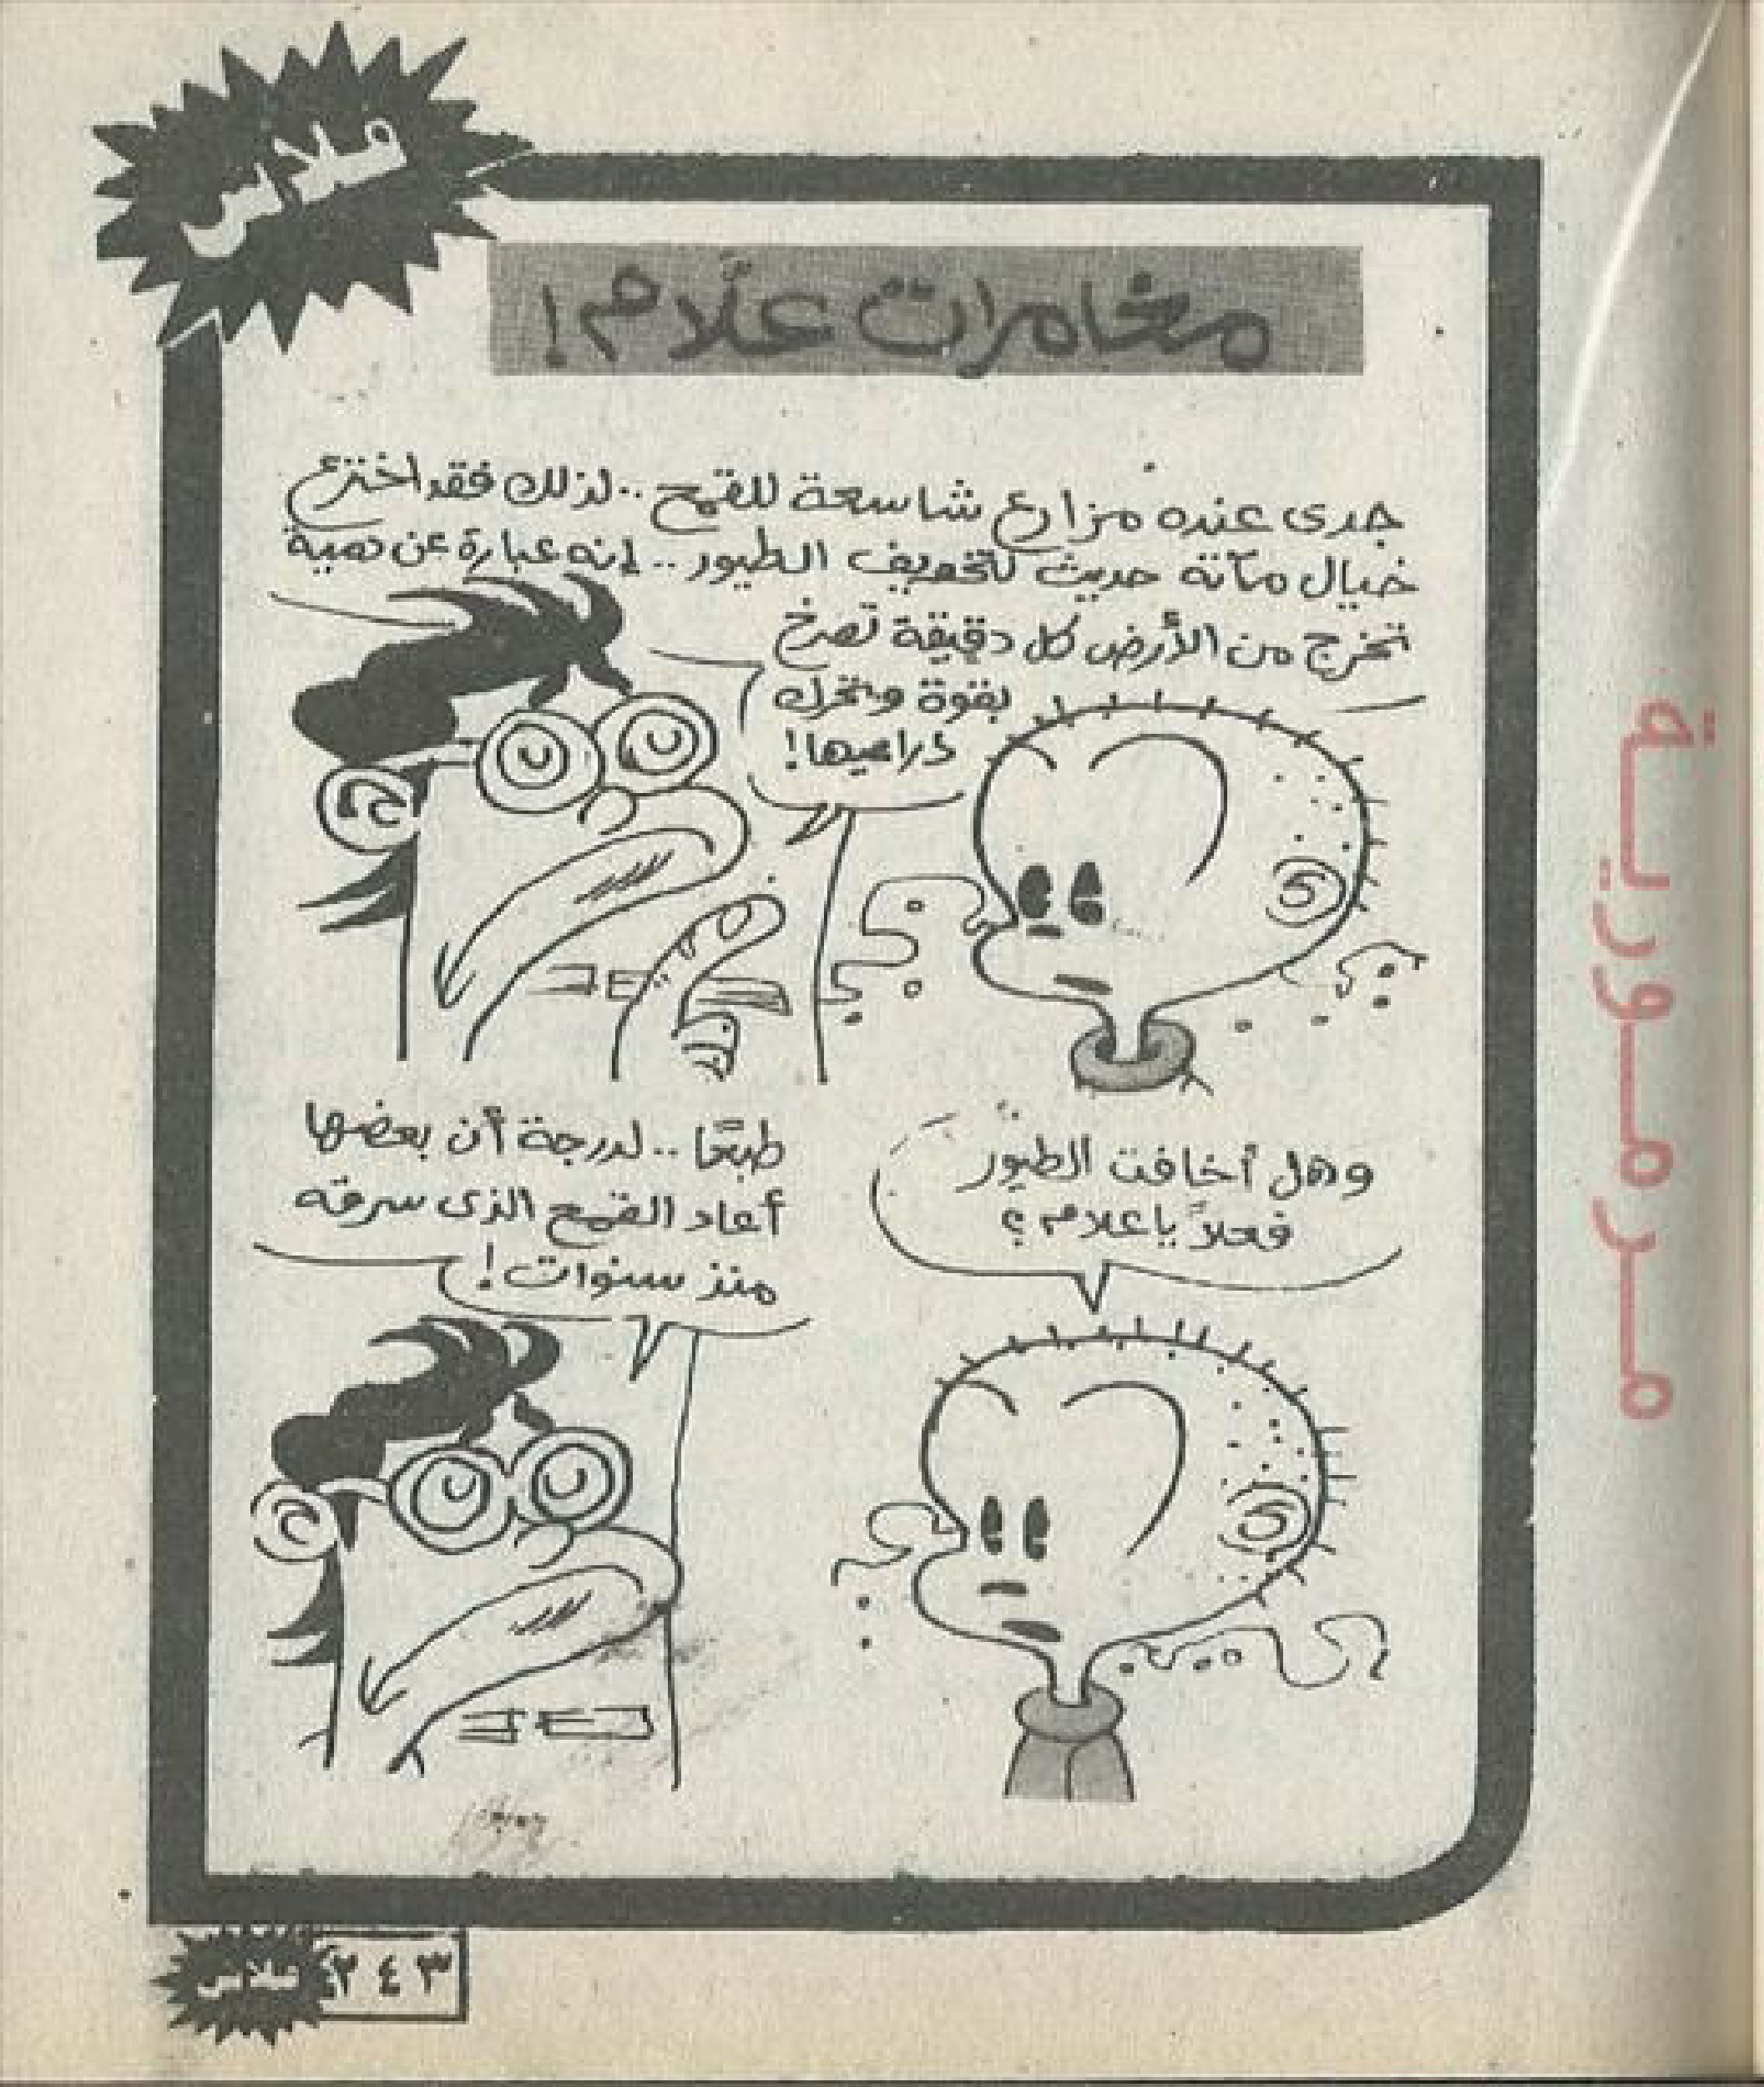 فلاش
مغامرات علام!
جدى عنده مزارع شاسعة للقمح .. لذلك فقد اخترع
خيال مآتة حديث لتخويف الطيور .. إنه عبارة عن دمية
تخرج من الأرض كل دقيقة تصرخ
بقوة وتحرك
ذراعيها!
وهل أخافت الطيور
فعلاً يا علام؟
طبعًا .. لدرجة أن بعضها
أعاد القمح الذى سرقه
منذ سنوات!
مرمورية
فلاش ٢٤٣